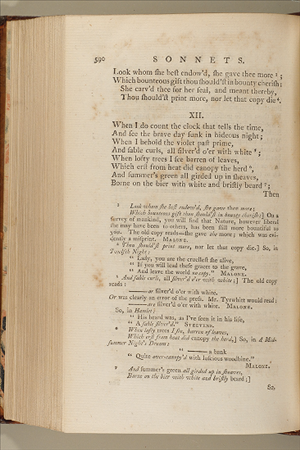 590 SONNETS.
Look whom she best endow'd, she gave thee more ¹;
Which bounteous gift thou should'st in bounty cherish:
She carv'd thee for her seal, and meant thereby,
Thou should'st print more, nor let that copy die ².
XII.
When I do count the clock that tells the time,
And see the brave day sunk in hideous night;
When I behold the violet past prime,
And sable curls, all silver'd o'er with white ³;
When lofty trees I see barren of leaves,
Which erst from heat did canopy the herd ⁴,
And summer's green all girded up in sheaves,
Borne on the bier with white and bristly beard ⁵;
Then
¹ Look whom she best endow'd, she gave thee more;
Which bounteous gift thou should'st in bounty cherish:] On a
survey of mankind, you will find that Nature, however liberal
she may have been to others, has been still more bountiful to
you. The old copy reads—she gave the more; which was evi-
dently a misprint. MALONE.
² Thou should'st print more, nor let that copy die.] So, in
Twelfth Night:
" Lady, you are the cruellest she alive,
" If you will lead these graces to the grave,
" And leave the world no copy." MALONE.
³ And sable curls, all silver'd o'er with white;] The old copy
reads:
———or silver'd o'er with white.
Or was clearly an error of the press. Mr. Tyrwhitt would read;
———are silver'd o'er with white. MALONE.
So, in Hamlet:
" His beard was, as I've seen it in his life,
" A sable silver'd." STEEVENS.
⁴ When lofty trees I see, barren of leaves,
Which erst from heat did canopy the herd,] So, in A Mid-
summer Night's Dream:
" ——— a bank
" Quite over-canopy'd with luscious woodbine."
MALONE.
⁵ And summer's green all girded up in sheaves,
Borne on the bier with white and bristly beard;]
So,